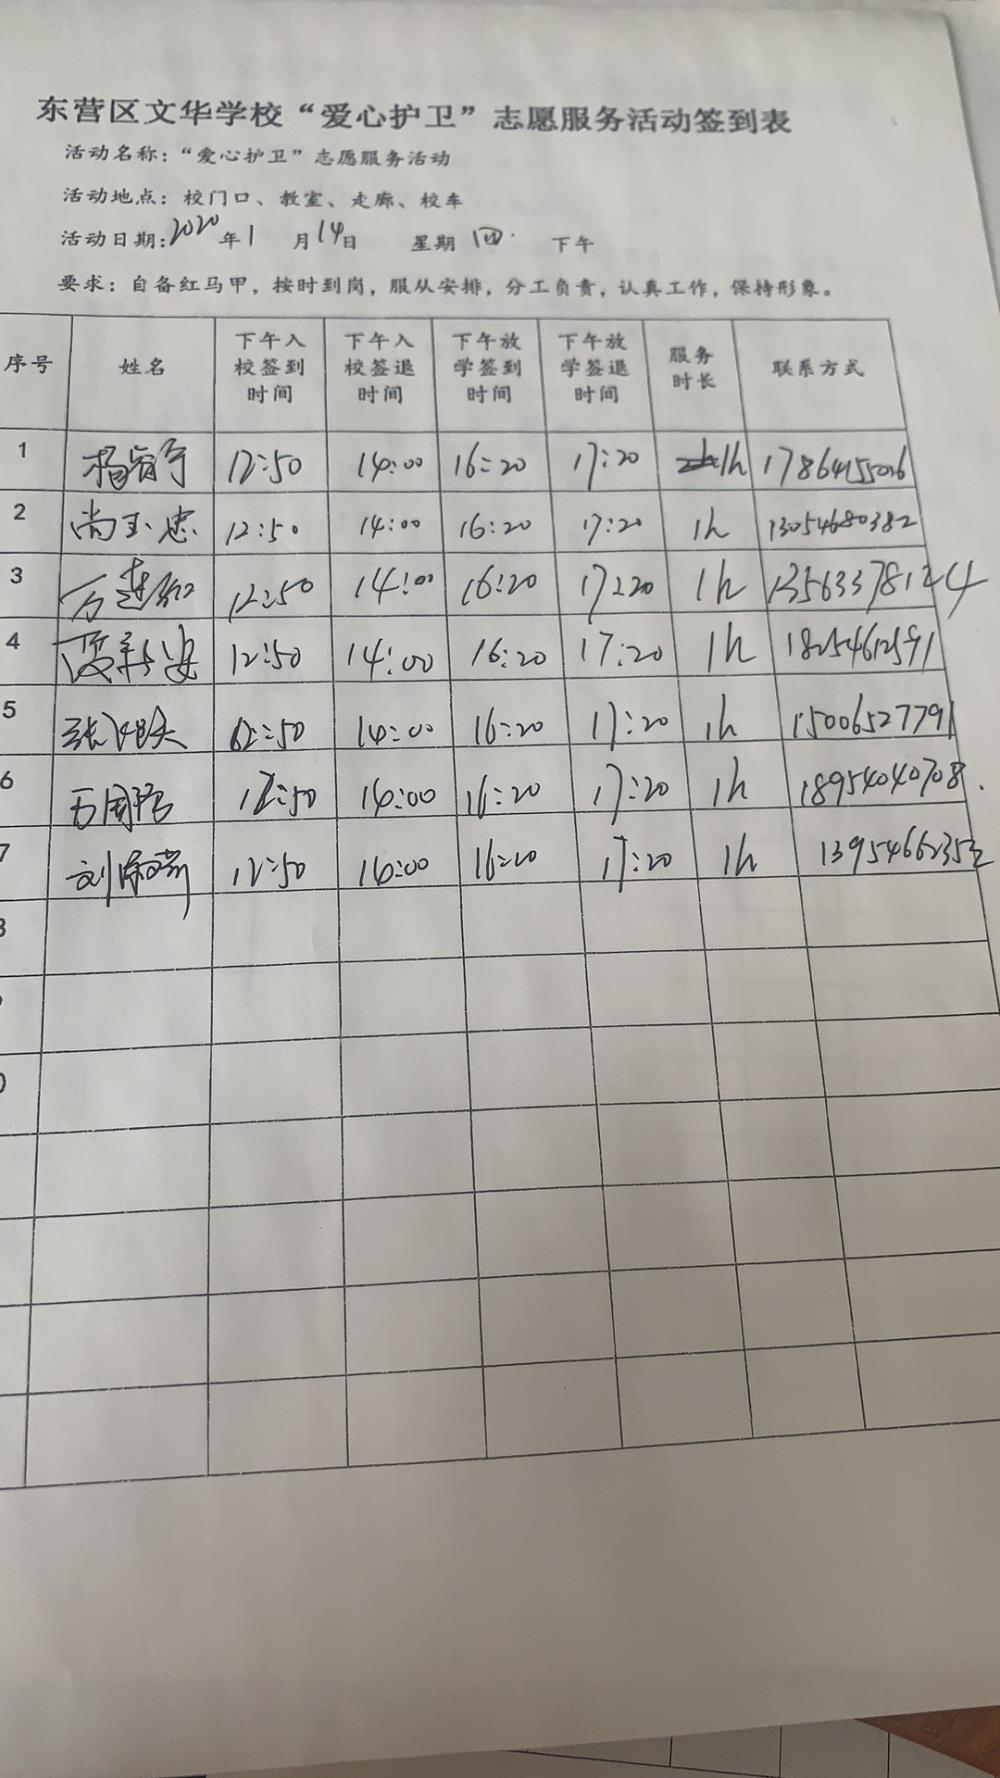 东营区文华学校“爱心护卫”志愿服务活动签到表
活动名称：“爱心护卫”志愿服务活动
活动地点：校门口、教室、走廊、校车
活动日期：2020年1 月14日 星期 四. 下午
要求：自备红马甲，按时到岗，服从安排，分工负责，认真工作，保持形象。
序号 姓名 下午入校签到时间 下午入校签退时间 下午放学签到时间 下午放学签退时间 服务时长 联系方式
1 12:50 14:00 16:20 17:20 1h
2 尚玉忠 12:50 14:00 16:20 17:20 1h 13054680382
3 12:50 14:00 16:20 17:20 1h 13563378124
4 12:50 14:00 16:20 17:20 1h 18254612591
5 12:50 14:00 16:20 17:20 1h 15006527791
6 12:50 14:00 16:20 17:20 1h 18954040708.
7 12:50 14:00 16:20 17:20 1h